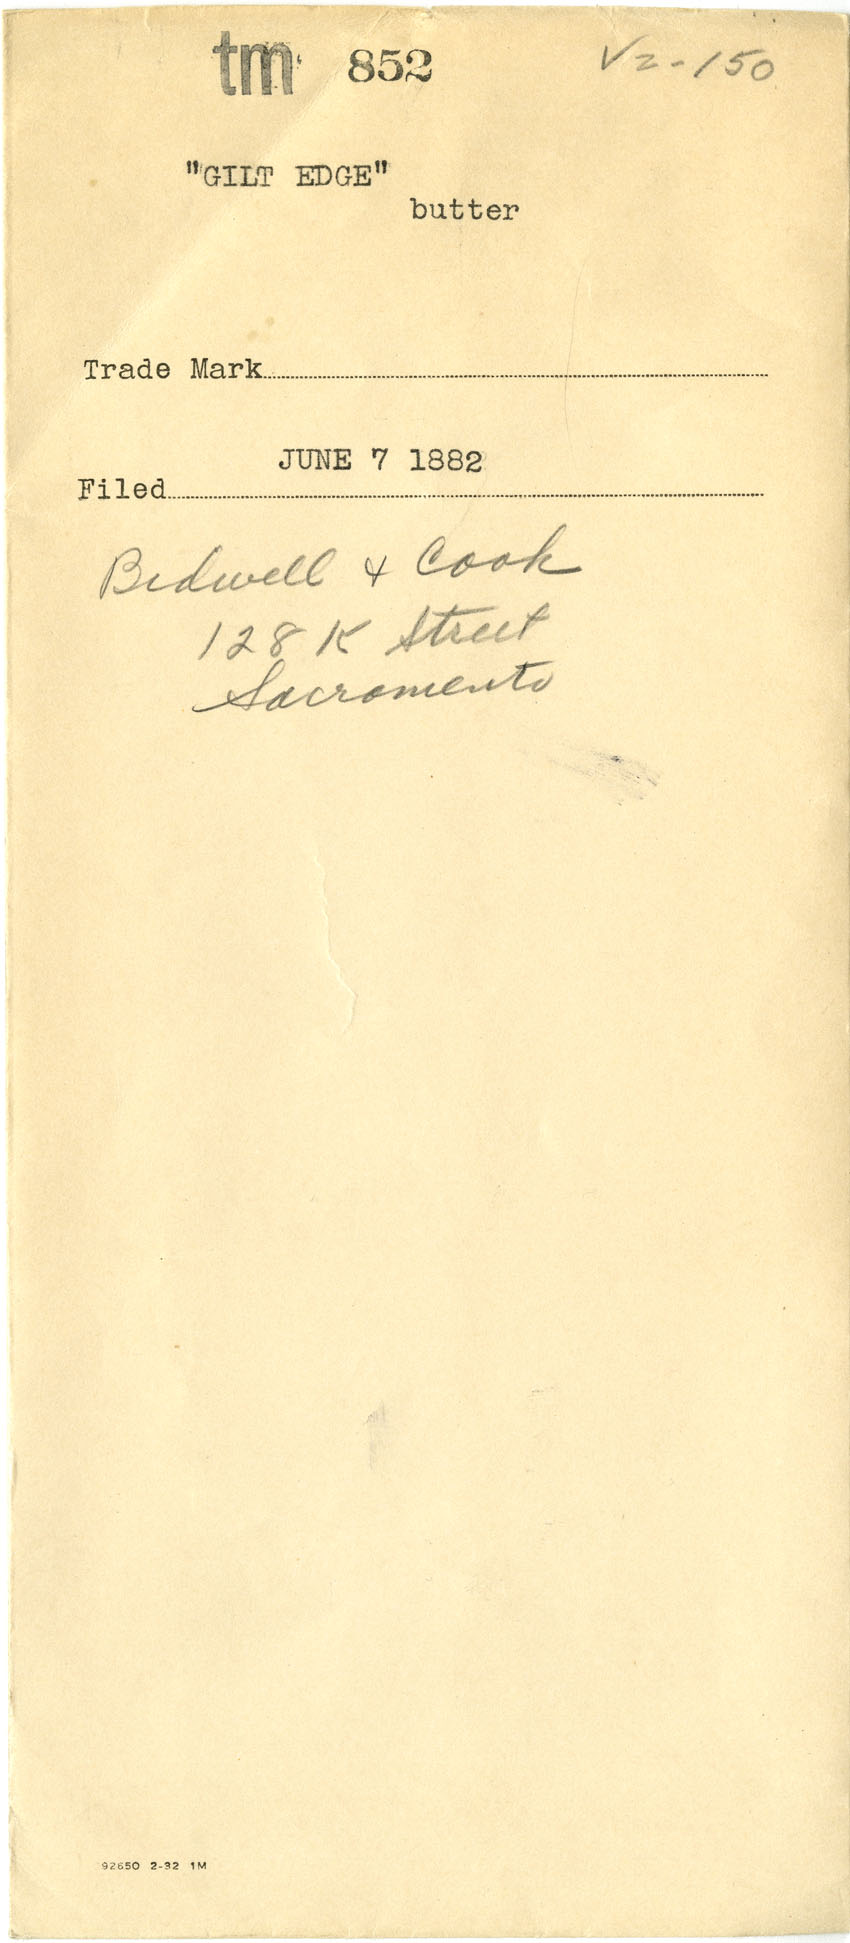 tm 852 V2-150
"GILT EDGE"
butter
Trade Mark
JUNE 7 1882
Filed
Bidwell & Cook
128 K Street
Sacramento
92650 2-32 1M